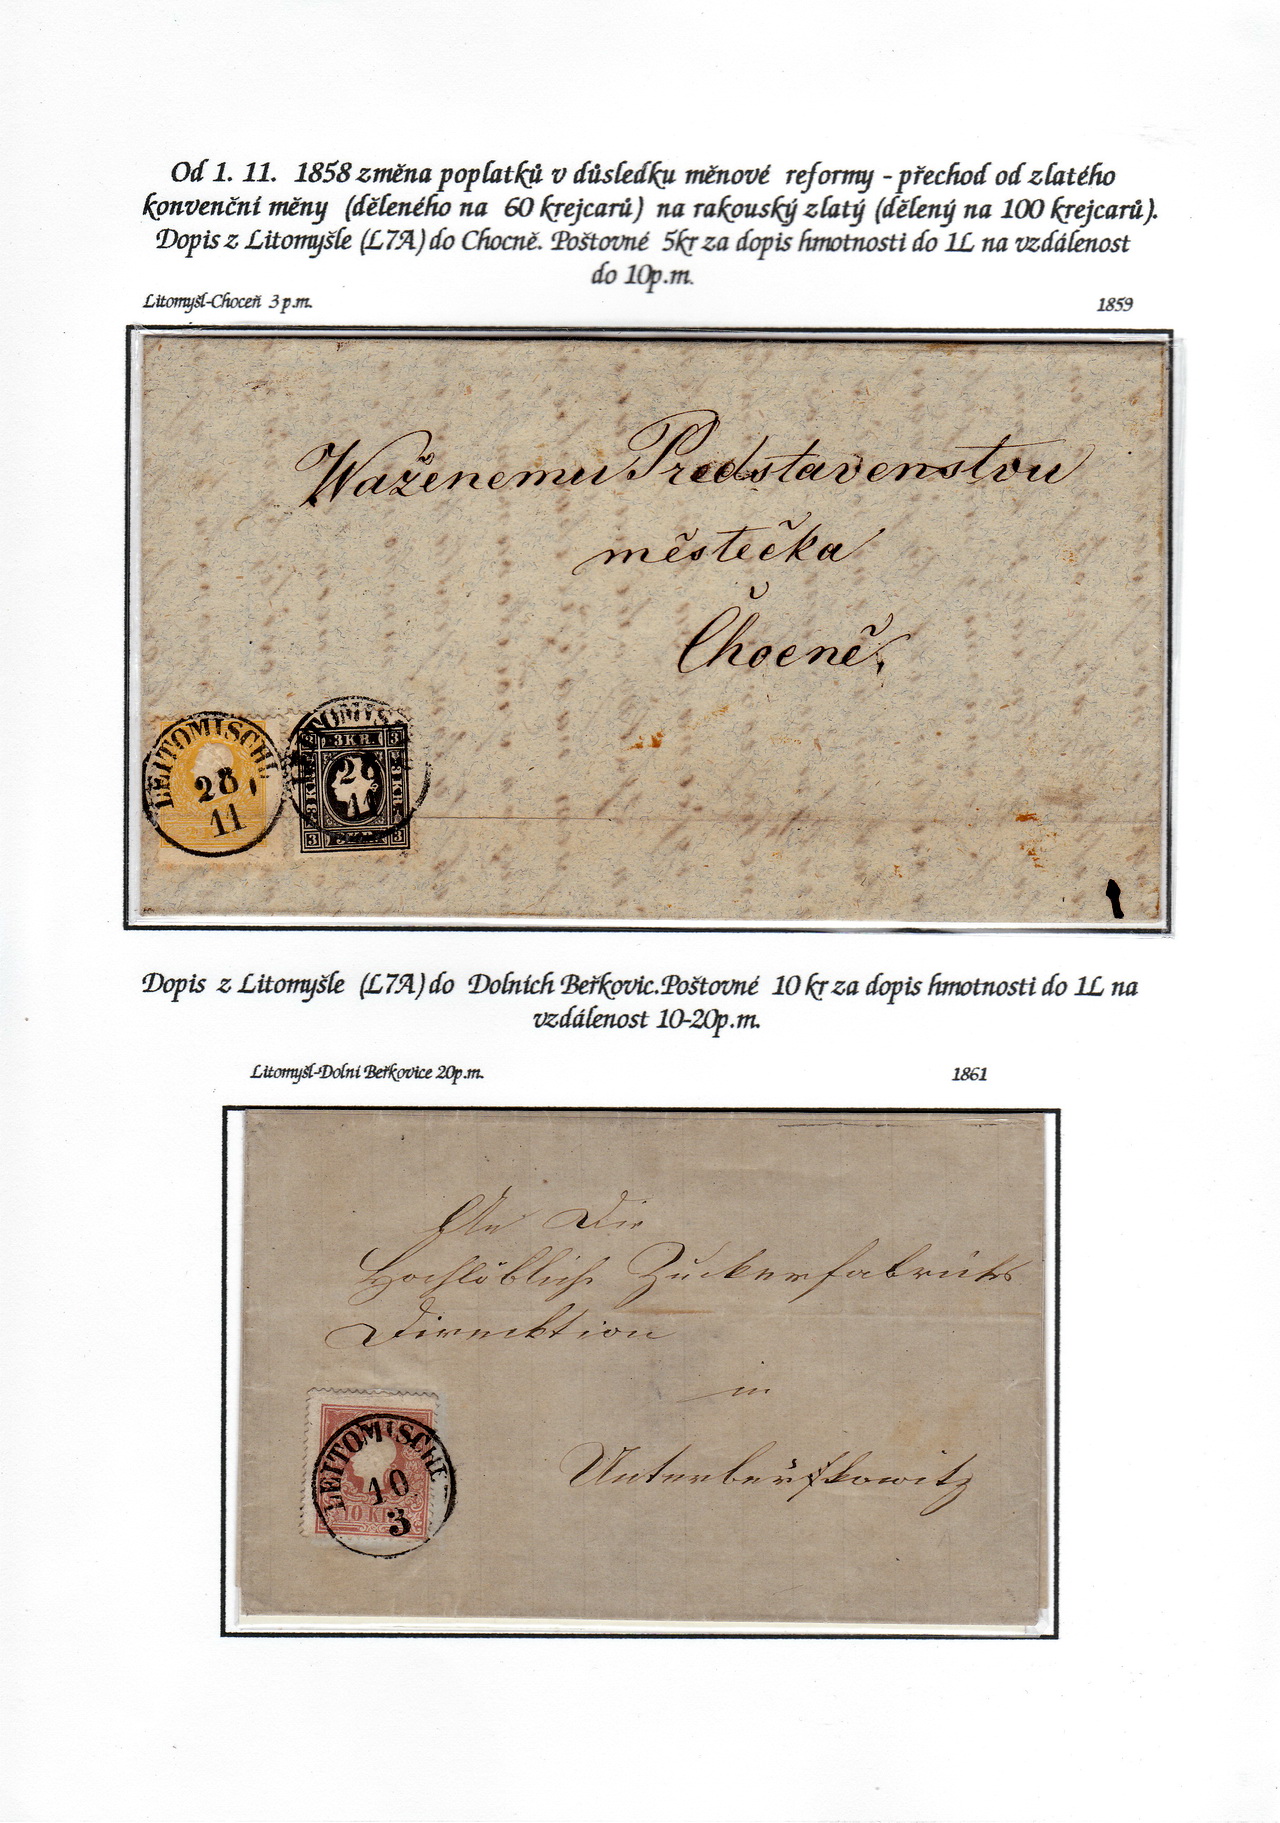 Od 1. 11. 1858 změna poplatků v důsledku měnové reformy - přechod od zlatého
konvenční měny (děleného na 60 krejcarů) na rakouský zlatý (dělený na 100 krejcarů).
Dopis z Litomyšle (L7A) do Chocně. Poštovné 5kr za dopis hmotnosti do 1L na vzdálenost
do 10p.m.
Litomyšl-Choceň 3 p.m.
1859
Waženemu Predstavenstvu
městečka
Chocně
LEITOMISCHL
28
11
LEITOMISCHL
3KR.
28
11
Dopis z Litomyšle (L7A) do Dolních Beřkovic.Poštovné 10 kr za dopis hmotnosti do 1L na
vzdálenost 10-20p.m.
Litomyšl-Dolní Beřkovice 20p.m.
1861
An Die
Hochlöbliche Zuckerfabriks
Direcktion
in
Unterberřkowitz
LEITOMISCHL
10
3
10 KR